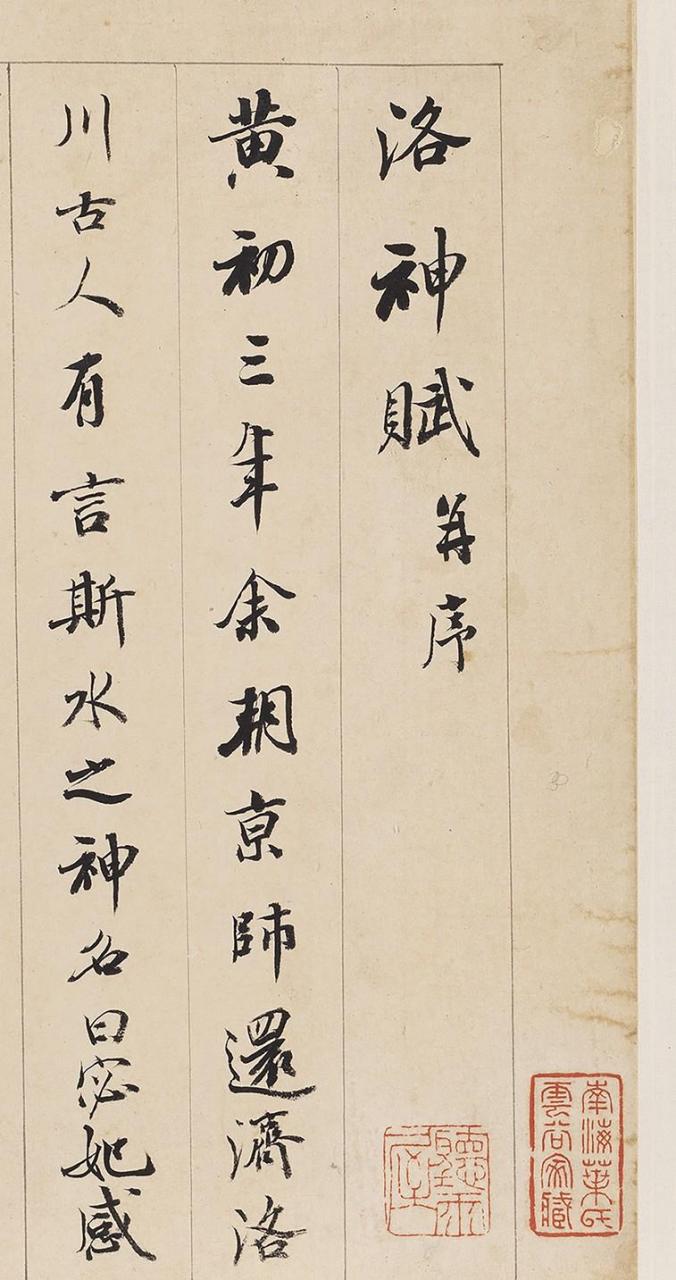 洛神賦并序
黄初三年余朝京師還濟洛
川古人有言斯水之神名曰宓妃感
南海葉氏雲谷家藏